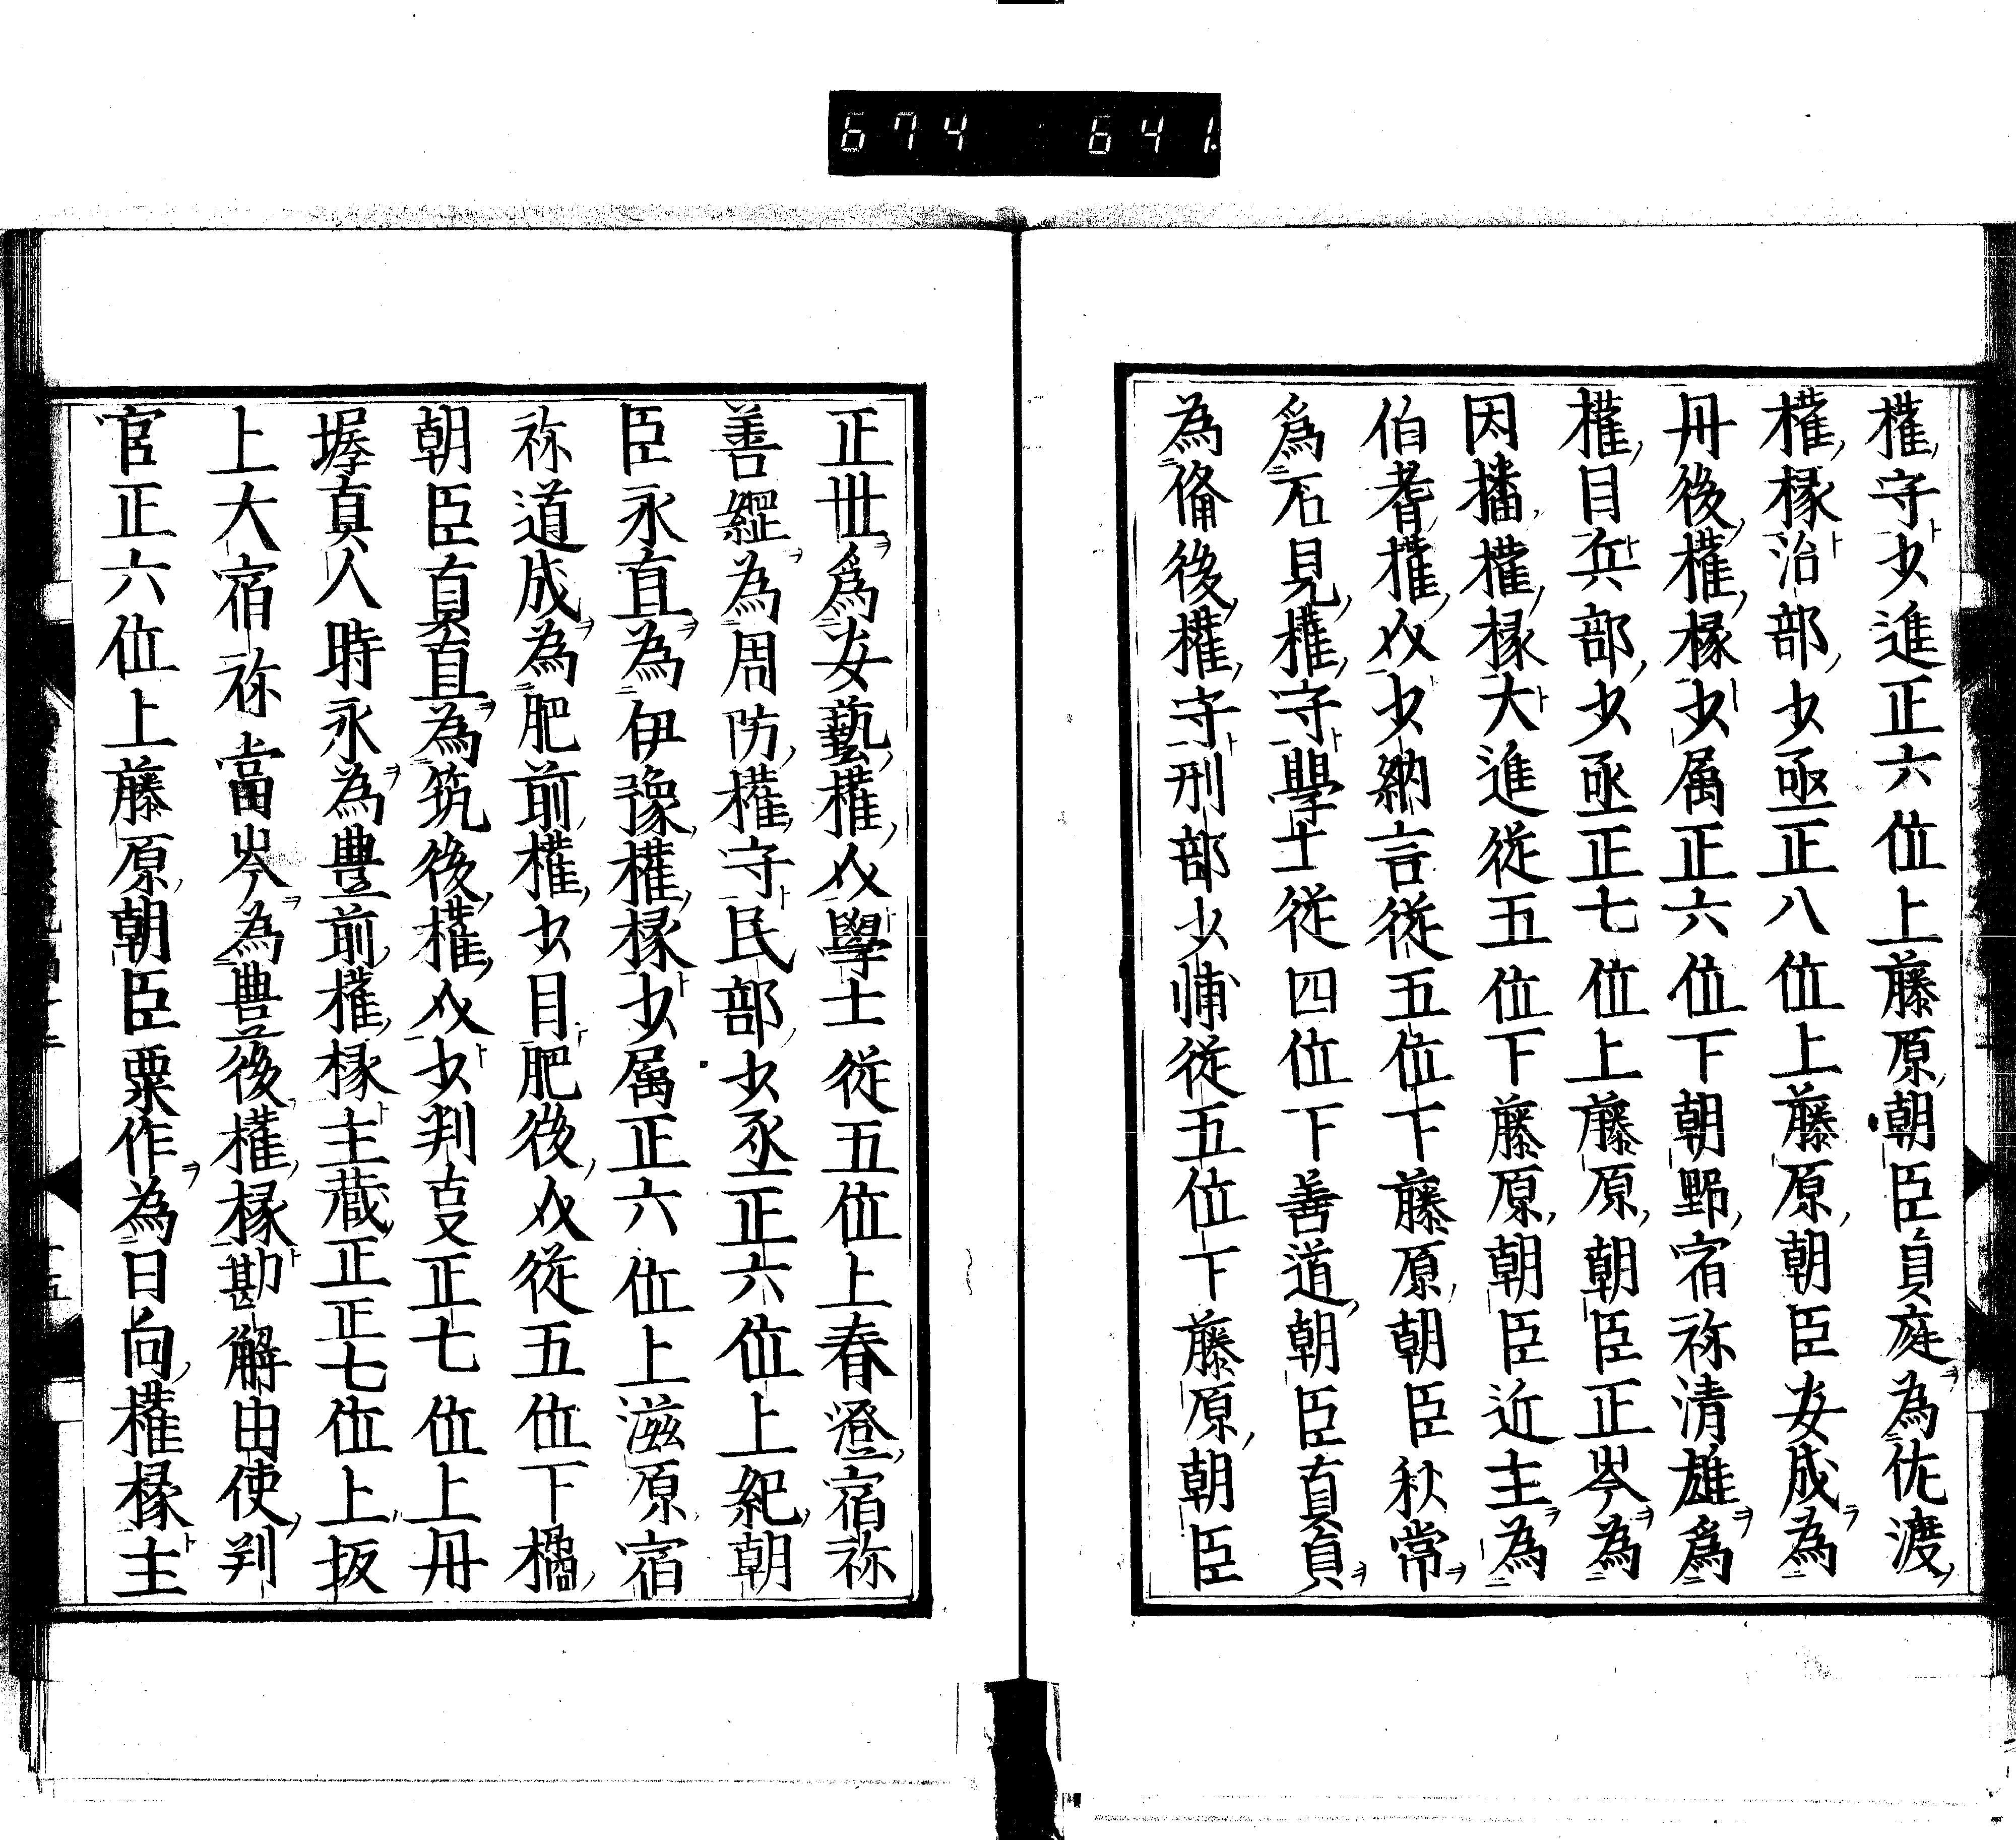 674 641.
権守少進正六位上藤原朝臣貞庭為佐渡
権掾治部少丞正八位上藤原朝臣安成為
丹後権掾少属正六位下朝野宿祢清雄爲
権目兵部少丞正七位上藤原朝臣正岑為
因播権掾大進従五位下藤原朝臣近主為
伯耆権介少納言従五位下藤原朝臣秋常
爲石見権守學士従四位下善道朝臣真貞
為俻後権守刑部少輔従五位下藤原朝臣
正世爲安藝権介學士従五位上春澄宿祢
善縄為周防権守民部少丞正六位上紀朝
臣永直為伊豫権掾少属正六位上滋原宿
祢道成為肥前権少目肥後介従五位下橘
朝臣真直為筑後権介少判事正七位上丹
墀真人時永為豊前権掾主蔵正正七位上坂
上大宿祢當岑為豊後権掾勘解由使判
官正六位上藤原朝臣粟作為日向権掾主